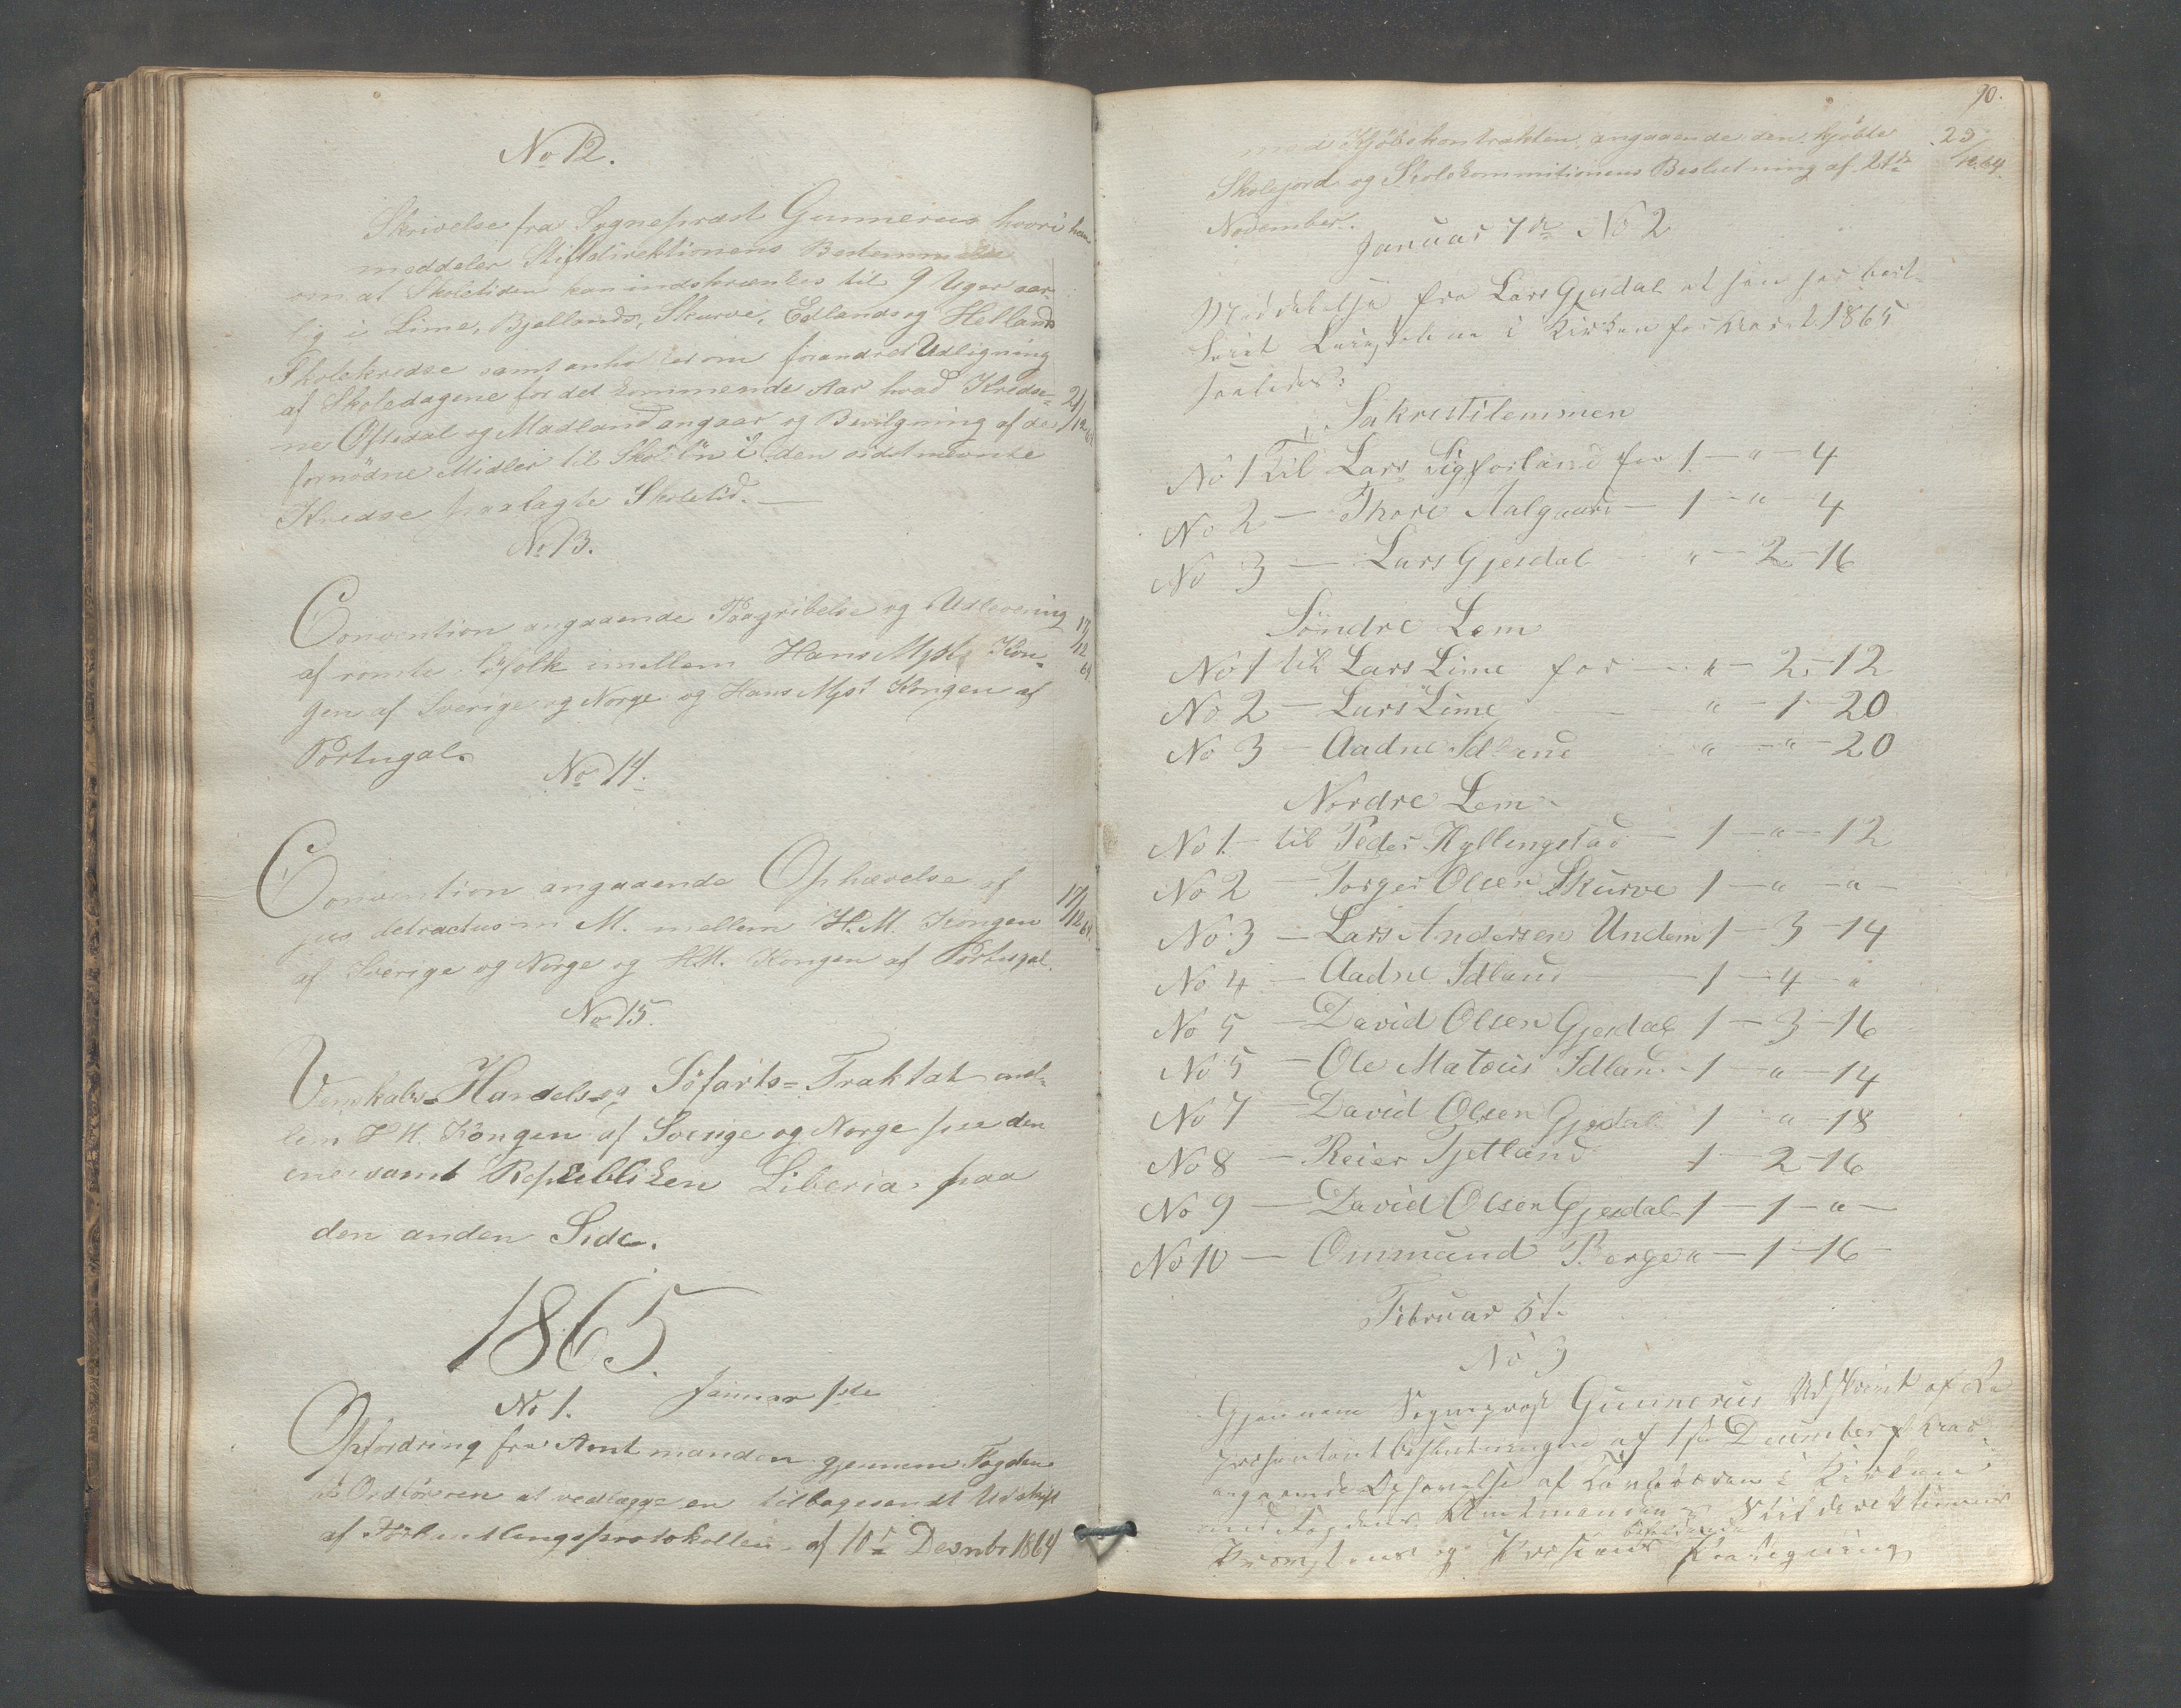 No 12.
Skrivelse fra Sognepræst Gunnerus hvori han
meddeler Stiftsdirektionens Bestemmelse
om at Skoletiden kan indskrænkes til 9 Uger aar-
lig i Lime, Bjellands, Skurve, Edlands og Hellands
Skolekredse samt anho om forandret Udligning
af Skoledagene for det kommende Aar hvad Kredse-
ne Oftedal og Madland angaar og Bevilgning af de
fornödne Midler til Skolen i den sidstnævnte
Kredse paalagte Skoletid.
21/12 64
No 13.
Convention angaaende Paagribelse og Udlevering
af römte Sjöfolk imellem Hans Mjst Kon-
gen af Sverige og Norge og Hans Mjst Kongen af
Portugal.
17/12 64.
No 14.
Convention angaaende Ophævelse af
jus detractus m M. mellem H.M. Kongen
af Sverige og Norge og H.M. Kongen af Portugal.
17/12 64.
No 15.
Venskabs-Handels og Söfarts-Traktat mel-
len H M. Kongen af Sverige og Norge paa den
ene samt Republiken Liberia paa
den anden Side.
1865.
No 1. Januar 1ste
Opfordring fra Amtmanden gjennem Fogden
til Ordföreren at vedlægge en tilbagesendt Udskrift
af Forhandlingsprotokollen af 10de Desmbr 1864
90.
med Kjöbekontrakten angaaende den kjöbte
Skolejord og Skolekommitionens Beslutning af 21de
November.
23/12 64.
Januar 7de No 2
Meddelelse fra Lars Gjesdal at han har bort-
i Kirken for Aaret 1865
saaledes:
Sakrestilemmen
No 1 til Lars Sigforland for 1 — " — 4
No 2 — Thore Aalgaard — 1 — " 4
No 3 — Lars Gjesdal " — 2 — 16
Söndre Lem
No 1 til Lars Lime for — " — 2 — 12
No 2 — Lars Lime — " — 1 — 20
No 3 — Aadne Idland " — " — 20
Nordre Lem
No 1 — til Peder Kyllingstad — 1 — " — 12
No 2 — Torger Olsen Skurve 1 — " — " —
No 3 — Lars Andersen Undem 1 — 3 — 14
No 4 — Aadne Idland — 1 — 4 — "
No 5 — David Olsen Gjesdal 1 — 3 — 16
No 5 — Ole Mateus Idland — 1 — " — 14
No 7 — David Olsen Gjesdal 1 " — 18
No 8 — Reier Tjetland 1 — 2 — 16
No 9 — David Olsen Gjesdal 1 — 1 — " —
No 10 — Ommund Berge " — 1 — 16 —
Februar 5te
No 3
Gjennem Sogneprest Gunnerus Udskrivt af Re
presentantbeslutningen af 1ste December f Aar
angaaende af i Kirken
med Fogdens Amtmandens Stiftdirektionens
og Paategning